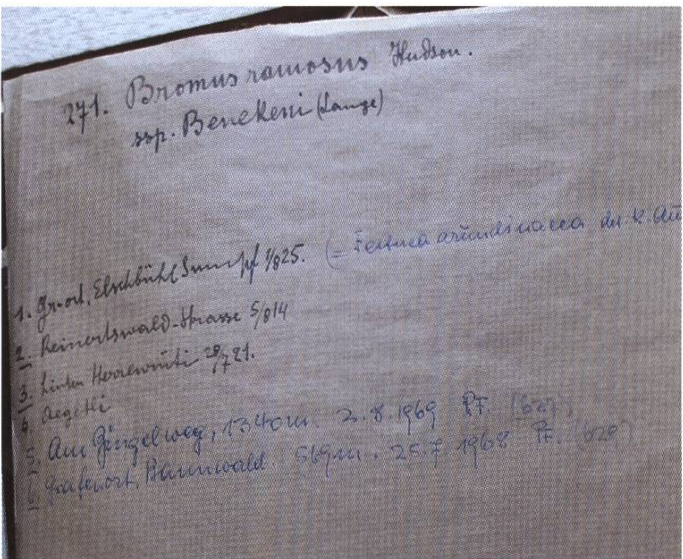 271. Bromus ramosus Hudson.
ssp. Benekeni (Lange)
1. Gr-ort, Elschbühl Sumpf 1/8 25. (= Festuca arundinacea det. K. Au
2. Reinertswald-Strasse 5/8 14
3. Hinter Horrewrüti 29/7 21.
4. Aegetli
5. Am Gingelweg, 1340m. 2.8.1969 Pf. (620)
6. Grafenort, Bannwald 569m. 25.7.1968 Pf. (620)